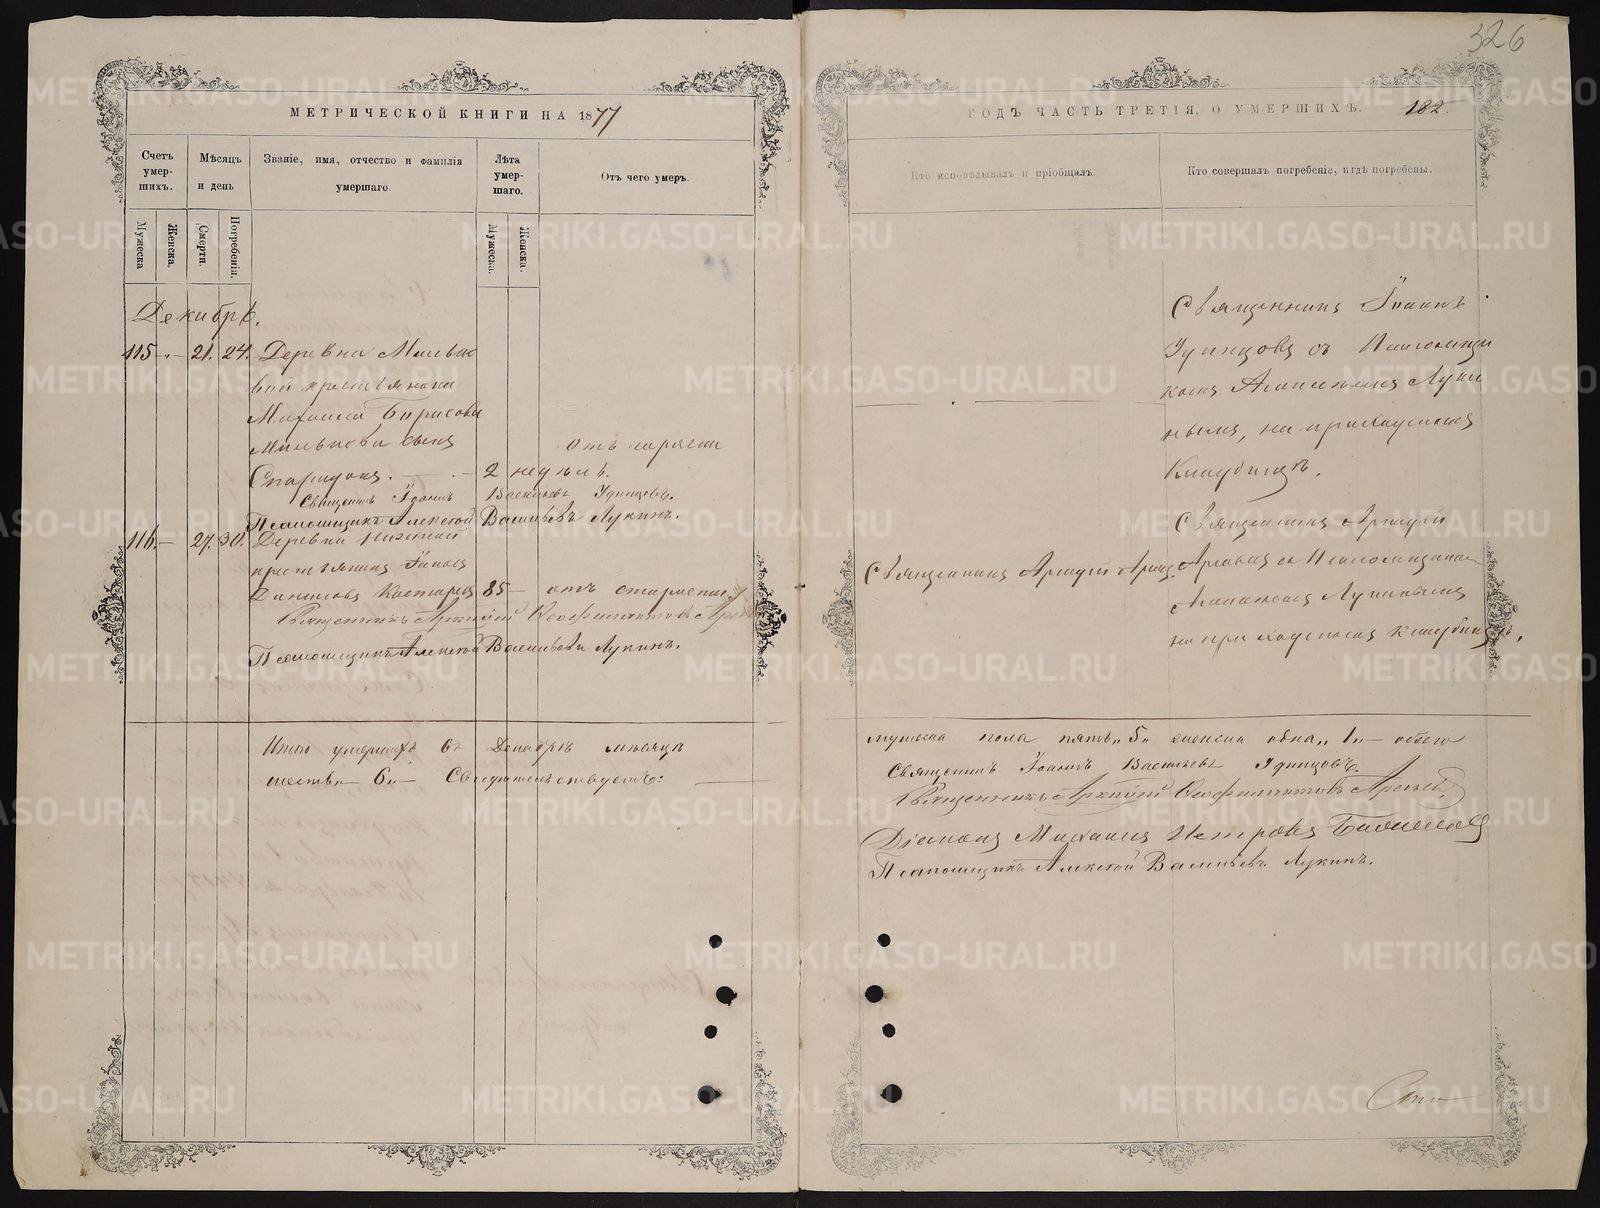 326
МЕТРИЧЕСКОЙ КНИГИ НА 1877
ГОДЪ ЧАСТЬ ТРЕТІЯ, О УМЕРШИХЪ. 182.
Счетъ умер- шихъ.
Мѣсяцъ и день
Званіе, имя, отчество и фамилія умершаго.
Лѣта умер- шаго.
Отъ чего умеръ.
Кто исповѣдывалъ и пріобщалъ.
Кто совершалъ погребеніе, и гдѣ погребены.
Мужеска
Женска.
Смерти.
Погребенія.
Мужеска.
Женска.
Декабрь.
115 - 21. 24. Деревни Милько
вой крестьянина
Михаила Борисова
Милькова сынъ
Спиридонъ. 2 недѣль. отъ горячки
Священникъ Іоаннъ Васильевъ Удинцовъ.
Псаломщикъ Алексѣй Васильевъ Лукинъ.
Священникъ Іоаннъ
Удинцовъ съ Псаломщи
комъ Алексѣемъ Луки
нымъ, на приходскомъ
Кладбищѣ.
116. - 27. 30. Деревни
крестьянинъ
85 - отъ старости
Священникъ Аркадій
Псаломщикъ Алексѣй Васильевъ Лукинъ.
Священникъ Аркадій
Священникъ Аркадій
съ Псаломщикомъ
Алексѣемъ Лукинымъ
на приходскомъ кладбищѣ.
Итого умершихъ въ Декабрѣ мѣсяцѣ
мужеска пола пять „5„ женска одна „1„ - обоего
шесть „6„ - Свидѣтельствуемъ:
Священникъ Іоаннъ Васильевъ Удинцовъ.
Священникъ Аркадій
Діаконъ Михаилъ Петровъ
Псаломщикъ Алексѣй Васильевъ Лукинъ.
METRIKI.GASO-URAL.RU